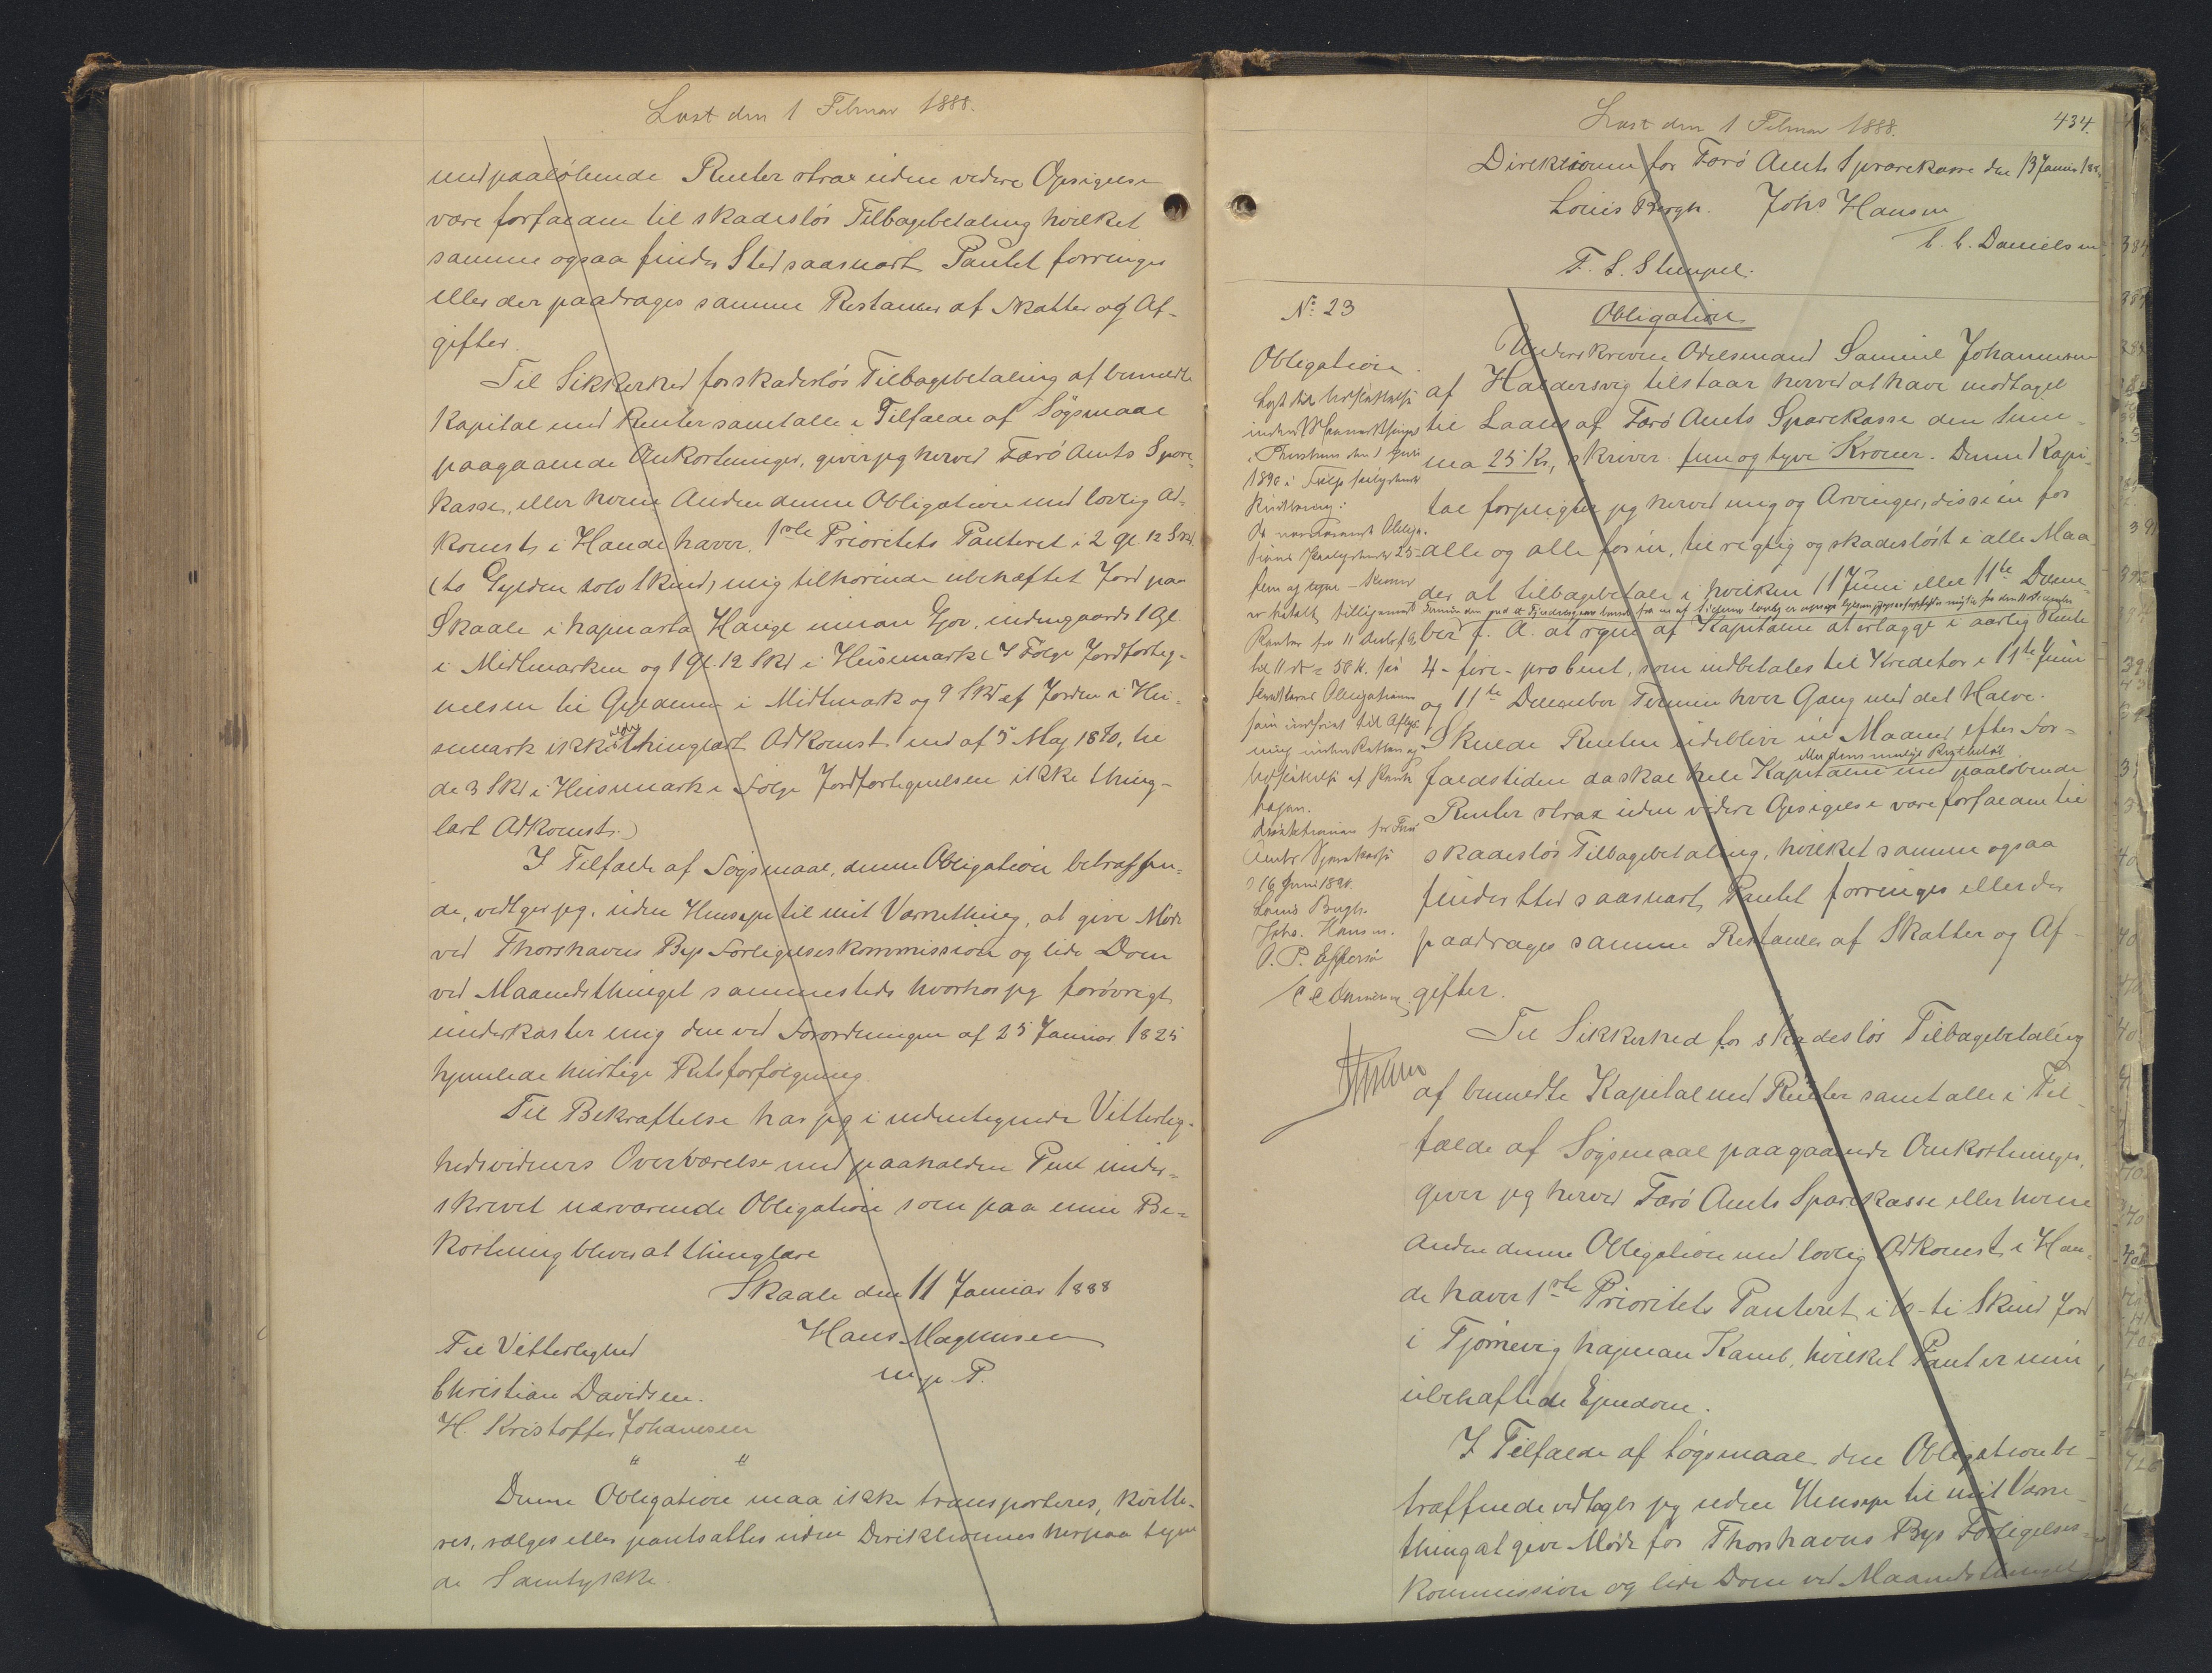 Læst den 1 Februar 1888.
med paaløbende Renter strax uden videre Opsigelse
være forfalden til skadesløs Tilbagebetaling hvilket
samme ogsaa finder Sted saasnart Pantet forringes
eller der paadrages samme Restancer af Skatter og Af-
gifter.
Til Sikkerhed for skadesløs Tilbagebetaling af bemeldte
Kapital med Renter samt alle i Tilfælde af Søgsmaal
paagaaende Omkostninger, giver jeg herved Færø Amts Spare-
kasse, eller hvem Anden denne Obligation med lovlig Ad-
komst i Hænde haver, 1ste Prioritets Panteret i 2 Gl. 12 Skd.
(to Gylden tolv Skind) mig tilhørende ubehæftet Jord paa
Skaale i hajmarta Hauge innan Gjov, indengaards 1 Gl.
i Midtmarken og 1 Gl. 12 Skd i Huusmark (I Følge Jordforteg-
nelsen til Gyldenen i Midtmark og 9 Skd af Jorden i Huu-
semark ikke thinglæst Adkomst med af 5 Maj 1880, til
de 3 Skd i Huusmark i Følge Jordfortegnelsen ikke thing-
læst Adkomst.)
I Tilfælde af Søgsmaal, denne Obligation betræffen-
de, vedtger jeg, uden Hensyn til mit Værnething, at give Møde
ved Thorshavns Byes Forligelseskommission og lide Dom
ved Maanedsthinget sammesteds hvorhos jeg forøvrigt
underkaster mig den ved Forordningen af 25 Januar 1825
hjemlede hurtige Retsforfølgning.
Til Bekræftelse har jeg i undertegnede Vitterlig-
hedsvidners Overværelse med paaholden Pen under-
skrevet nærværende Obligation som paa min Be-
kostning bliver at thinglæse
Skaale den 11 Januar 1888
Hans Magnusen
m. p. P.
Til Vitterlighed
Christian Davidsen.
H. Kristoffer Johannesen
" "
Denne Obligation maa ikke transporteres, kvitte-
res, sælges eller pantsættes uden Direktionens herpaa tegne
de Samtykke.
Læst den 1 Februar 1888.
434.
Direktionen for Færø Amts Sparekasse den 13 Januar 188
Louis Bergh. Johs Hansen
C. C. Danielsen
F. S. Stempel.
No 23
Obligation
Obligation.
Underskrevne Odelsmand Samuel Johannesen
af Haldersvig tilstaar herved at have modtaget
til Laans af Færø Amts Sparekasse den Sum-
ma 25 Kr, skriver fem og tyve Kroner. Denne Kapi-
tal forpligter jeg herved mig og Arvinger, disse én for
alle og alle for én, til rigtig og skadesløst i alle Maa-
der at tilbagebetale i hvilken 11 Juni eller 11te Decem-
ber f. A. at regne af Kapitalen at erlægge i aarlig Rente
4 - fire - procent, som indbetales til Kreditor i 11te Juni
og 11te December Termin hver Gang med det Halve.
Skulde Renten udeblive en Maaned efter For-
eller dens mulige Restbeløb
faldstiden da skal hele Kapitalen med paaløbende
Renter strax uden videre Opsigelse være forfalden til
skadesløs Tilbagebetaling, hvilket samme ogsaa
finder Sted saasnart Pantet forringes eller der
paadrages samme Restancer af Skatter og Af-
gifter.
Til Sikkerhed for skadesløs Tilbagebetaling
af bemeldte Kapital med Renter samt alle i Til-
fælde af Søgsmaal paagaaende Omkostninger,
giver jeg herved Færø Amts Sparekasse eller hvem
anden denne Obligation med lovlig Adkomst i Hæn-
de haver 1ste Prioritets Panteret i 10 - ti Skind Jord
i Tjørnevig hajman Kamb, hvilket Pant er min
ubehæftede Ejendom.
I Tilfælde af Søgsmaal den Obligation be-
træffende vedtages jeg uden Hensyn til mit Værne-
thing at give Møde for Thorshavns Byes Forligelses-
kommission og lide Dom ved Maanedsthinget
Læst til Udslettelse
1890 i Følge saalydende
Kvittering:
fem og tyve - Kroner
er betalt tilligemed
Direktionen for Færø
Amts Sparekasse
16 Juni 1890.
Louis Bergh.
Johs. Hansen.
O. P. Effersøe
C C Danielsen